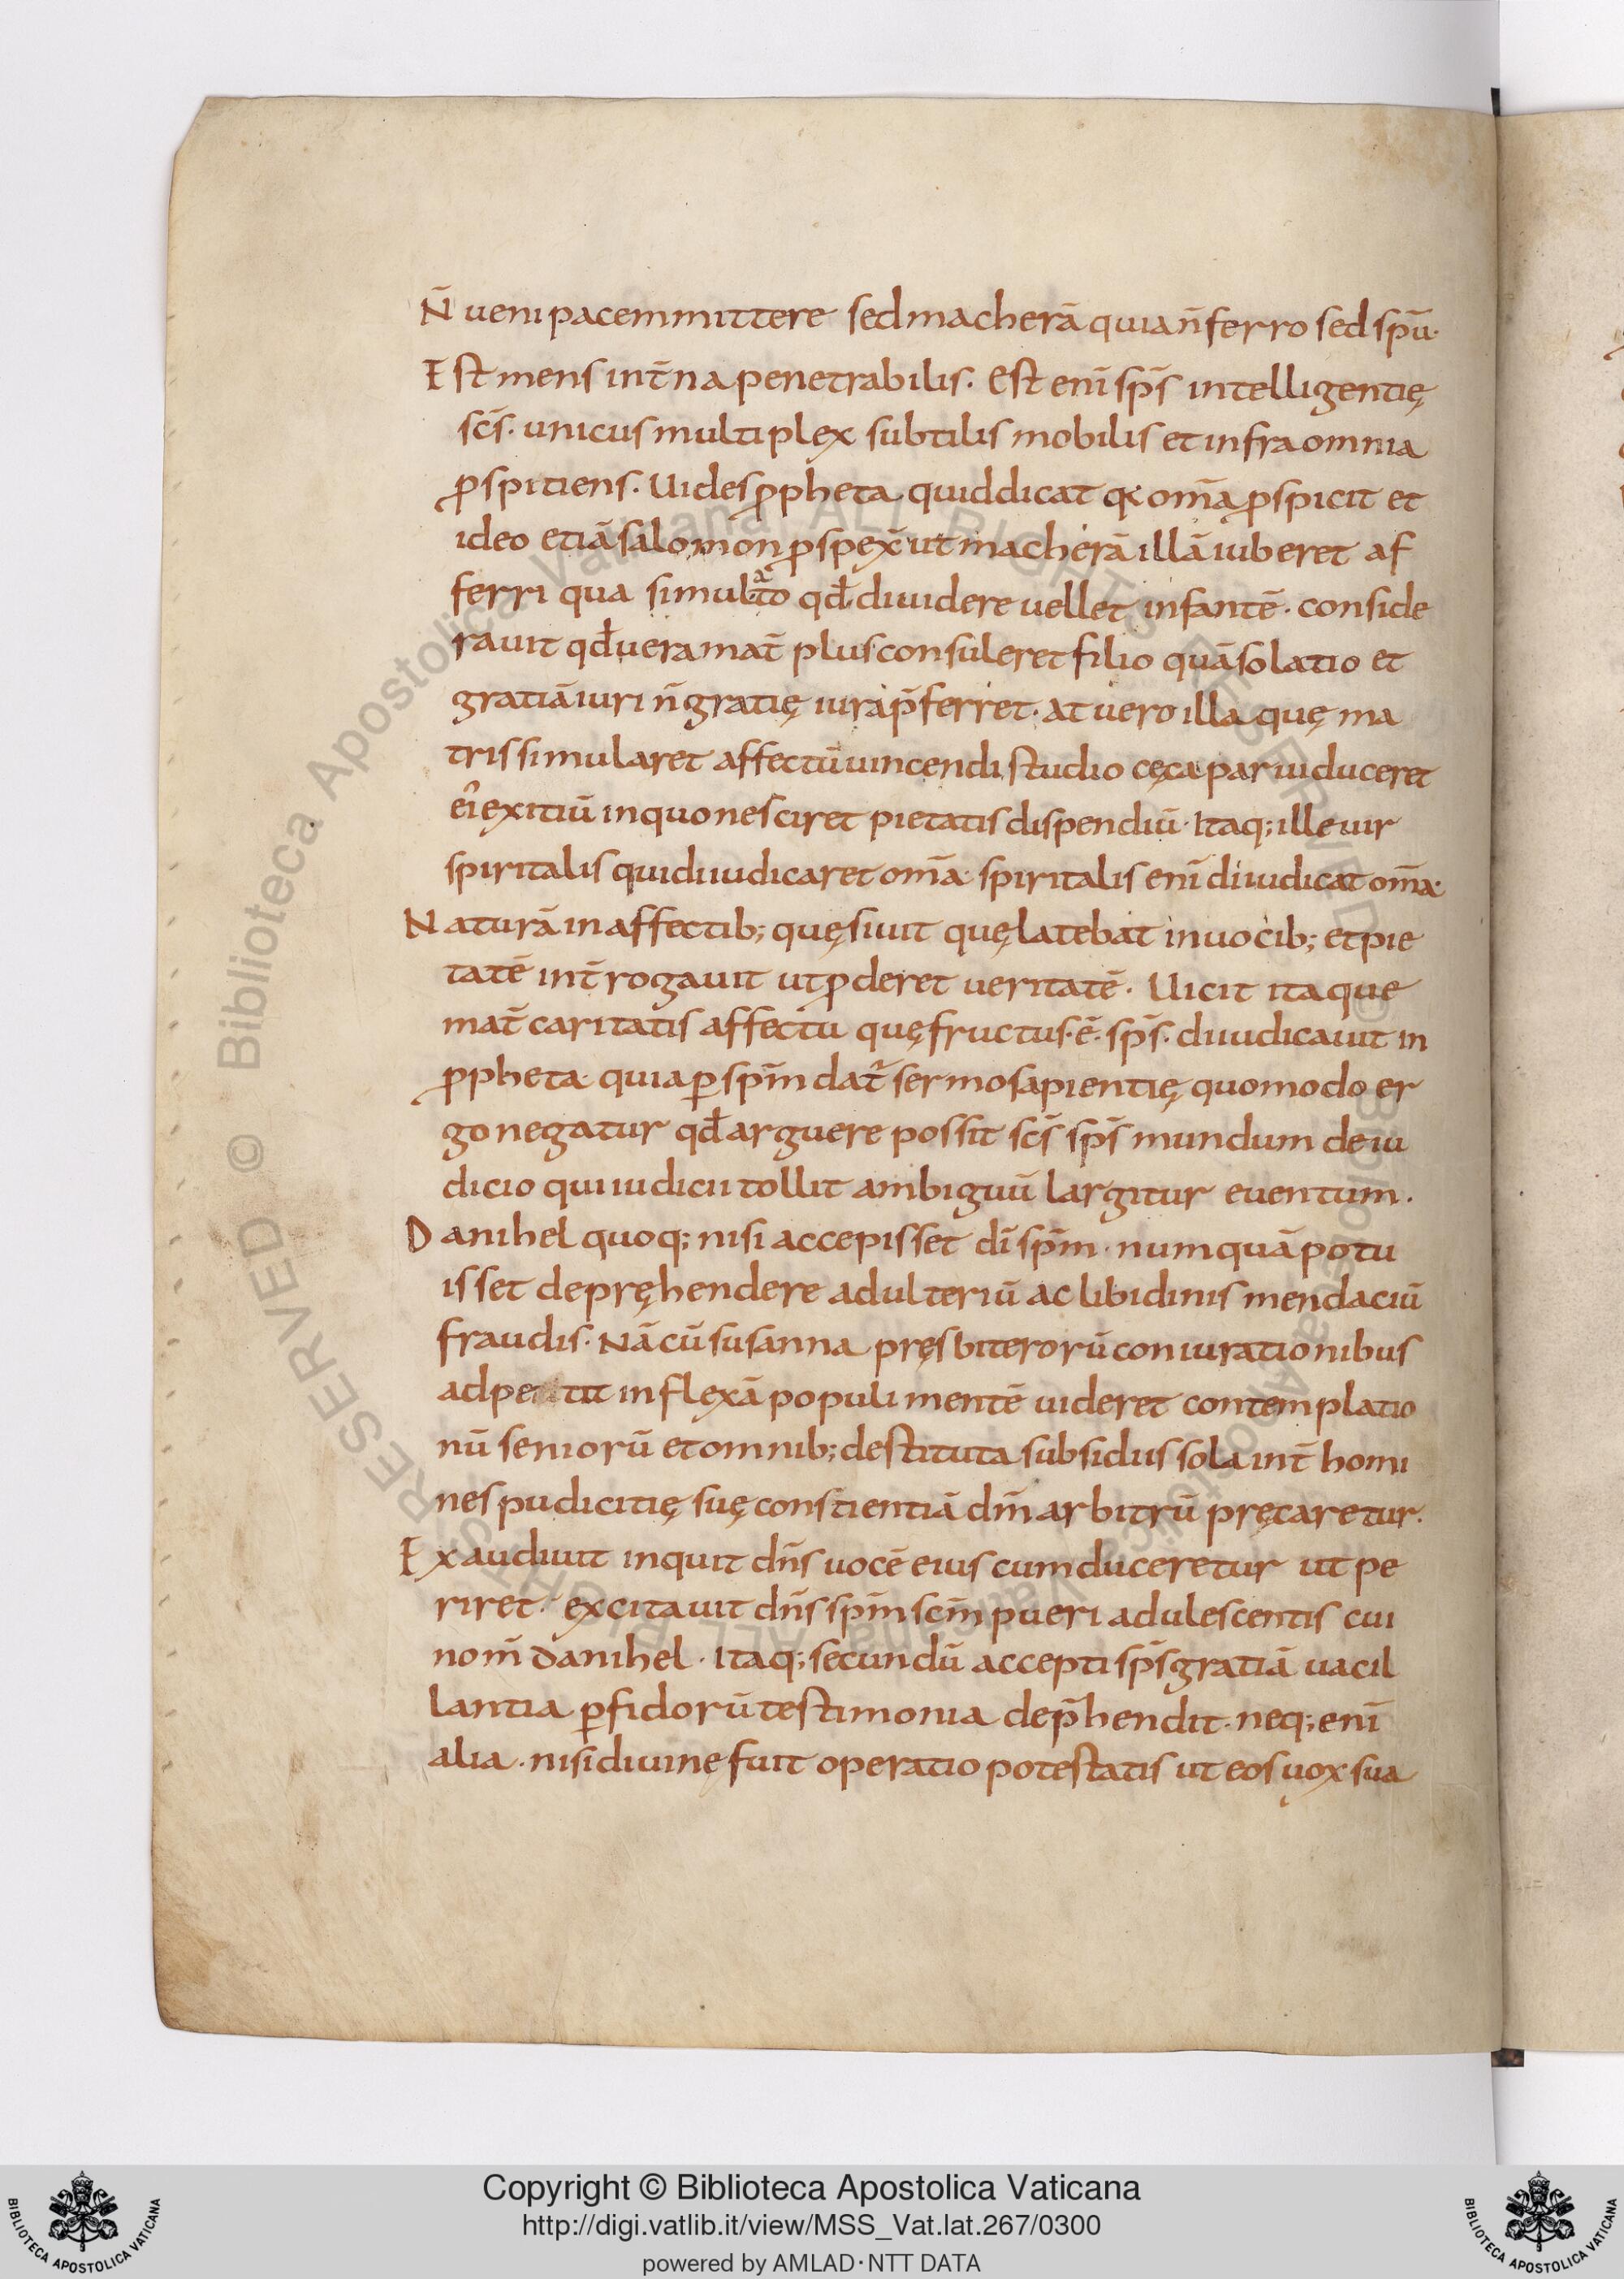 N̄ ueni pacem mittere sed macherā quia n̄ ferro sed spū·
Est mens int̄na penetrabilis. Est enī sps̄ intelligentię
scs̄. unicus multiplex subtilis mobilis et infra omnia
ꝓspitiens. Uides ꝓpheta quid dicat q: om̄a ꝓspicit et
ideo etiā salomon ꝓspex̄ ut macherā illā iuberet af
ferri qua simulato qđ diuidere uellet infantē. conside
rauit qđ uera mat̄ plus consuleret filio quā solatio et
gratiā iuri n̄ gratię iura p̄ferret. at uero illa quę ma
tris simularet affectū uincendi studio cęca parui duceret
ei exitiū in quo nesciret pietatis dispendiū. Itaq; ille uir
spiritalis qui diiudicaret om̄a· spiritalis enī diiudicat om̄a·
Naturā in affectib; quęsiuit quę latebat in uocib; et pie
tatē int̄rogauit ut ꝓderet ueritatē. Uicit itaque
mat̄ caritatis affectu quę fructus·ē· sps̄. diiudicauit in
ꝓpheta quia ꝑ spm̄ dat᷑ sermo sapientię quomodo er
go negatur qđ arguere possit scs̄ sps̄ mundum de iu
dicio qui iudicii tollit ambiguū largitur euentum.
Danihel quoq; nisi accepisset dī spm̄. numquā potu
isset depręhendere adulteriū ac libidinis mendaciū
fraudis. Nā cū susanna pręsbiterorū coniurationibus
inflexā populi mentē uideret contemplatio
nū seniorū et omnib; destituta subsidiis sola int̄ homi
nes pudicitię suę conscientiā dm̄ arbitrū pręcaretur.
Exaudiuit inquit dn̄s uocē eius cum duceretur ut pe
riret. excitauit dn̄s spm̄ scm̄ pueri adulescentis cui
nom̄ danihel. Itaq; secundū accepti sps̄ gratiā uacil
lantia ꝑfidorū testimonia dep̄hendit. neq; enī
alia. nisi diuinę fuit operatio potestatis ut eos uox sua
Biblioteca Apostolica Vaticana ALL RIGHTS RESERVED ©
Copyright © Biblioteca Apostolica Vaticana
http://digi.vatlib.it/view/MSS_Vat.lat.267/0300
powered by AMLAD·NTT DATA
BIBLIOTECA APOSTOLICA VATICANA
BIBLIOTECA APOSTOLICA VATICANA